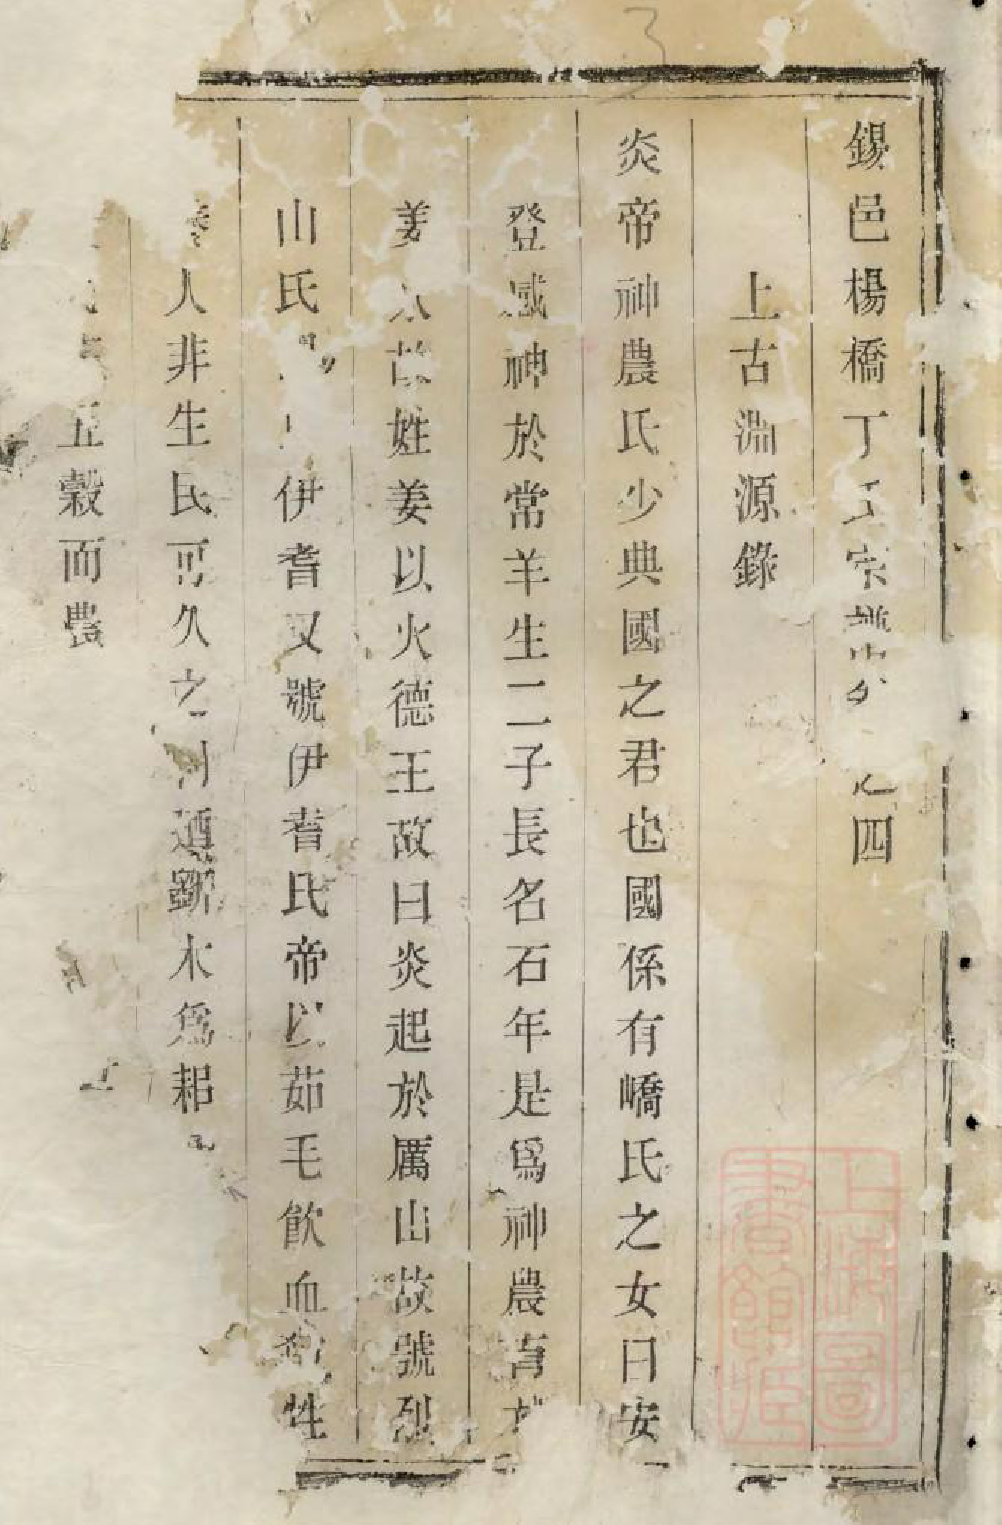 錫邑楊橋丁氏宗譜 之四
上古淵源錄
炎帝神農氏少典國之君也國係有嶠氏之女曰安
登感神於常羊生二子長名石年是爲神農育
姜 故姓姜以火德王故曰炎起於厲山故號烈
山氏 伊耆又號伊耆氏帝以茹毛飲血 性
人非生民可久之 迺斵木爲耜
五穀而農
上海圖書館藏